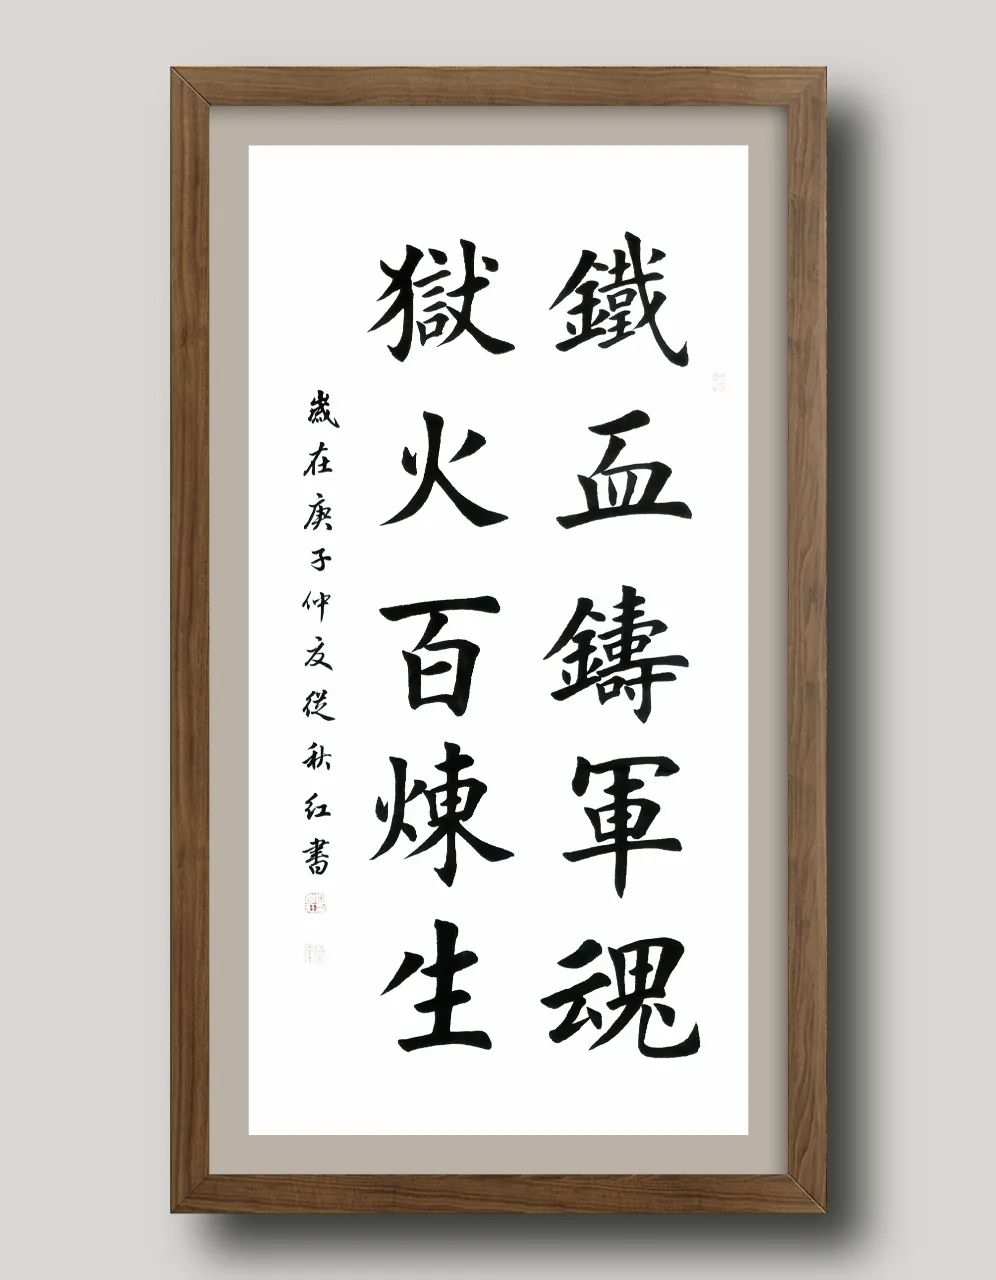 鐵血鑄軍魂
獄火百煉生
歲在庚子仲夏從秋紅書